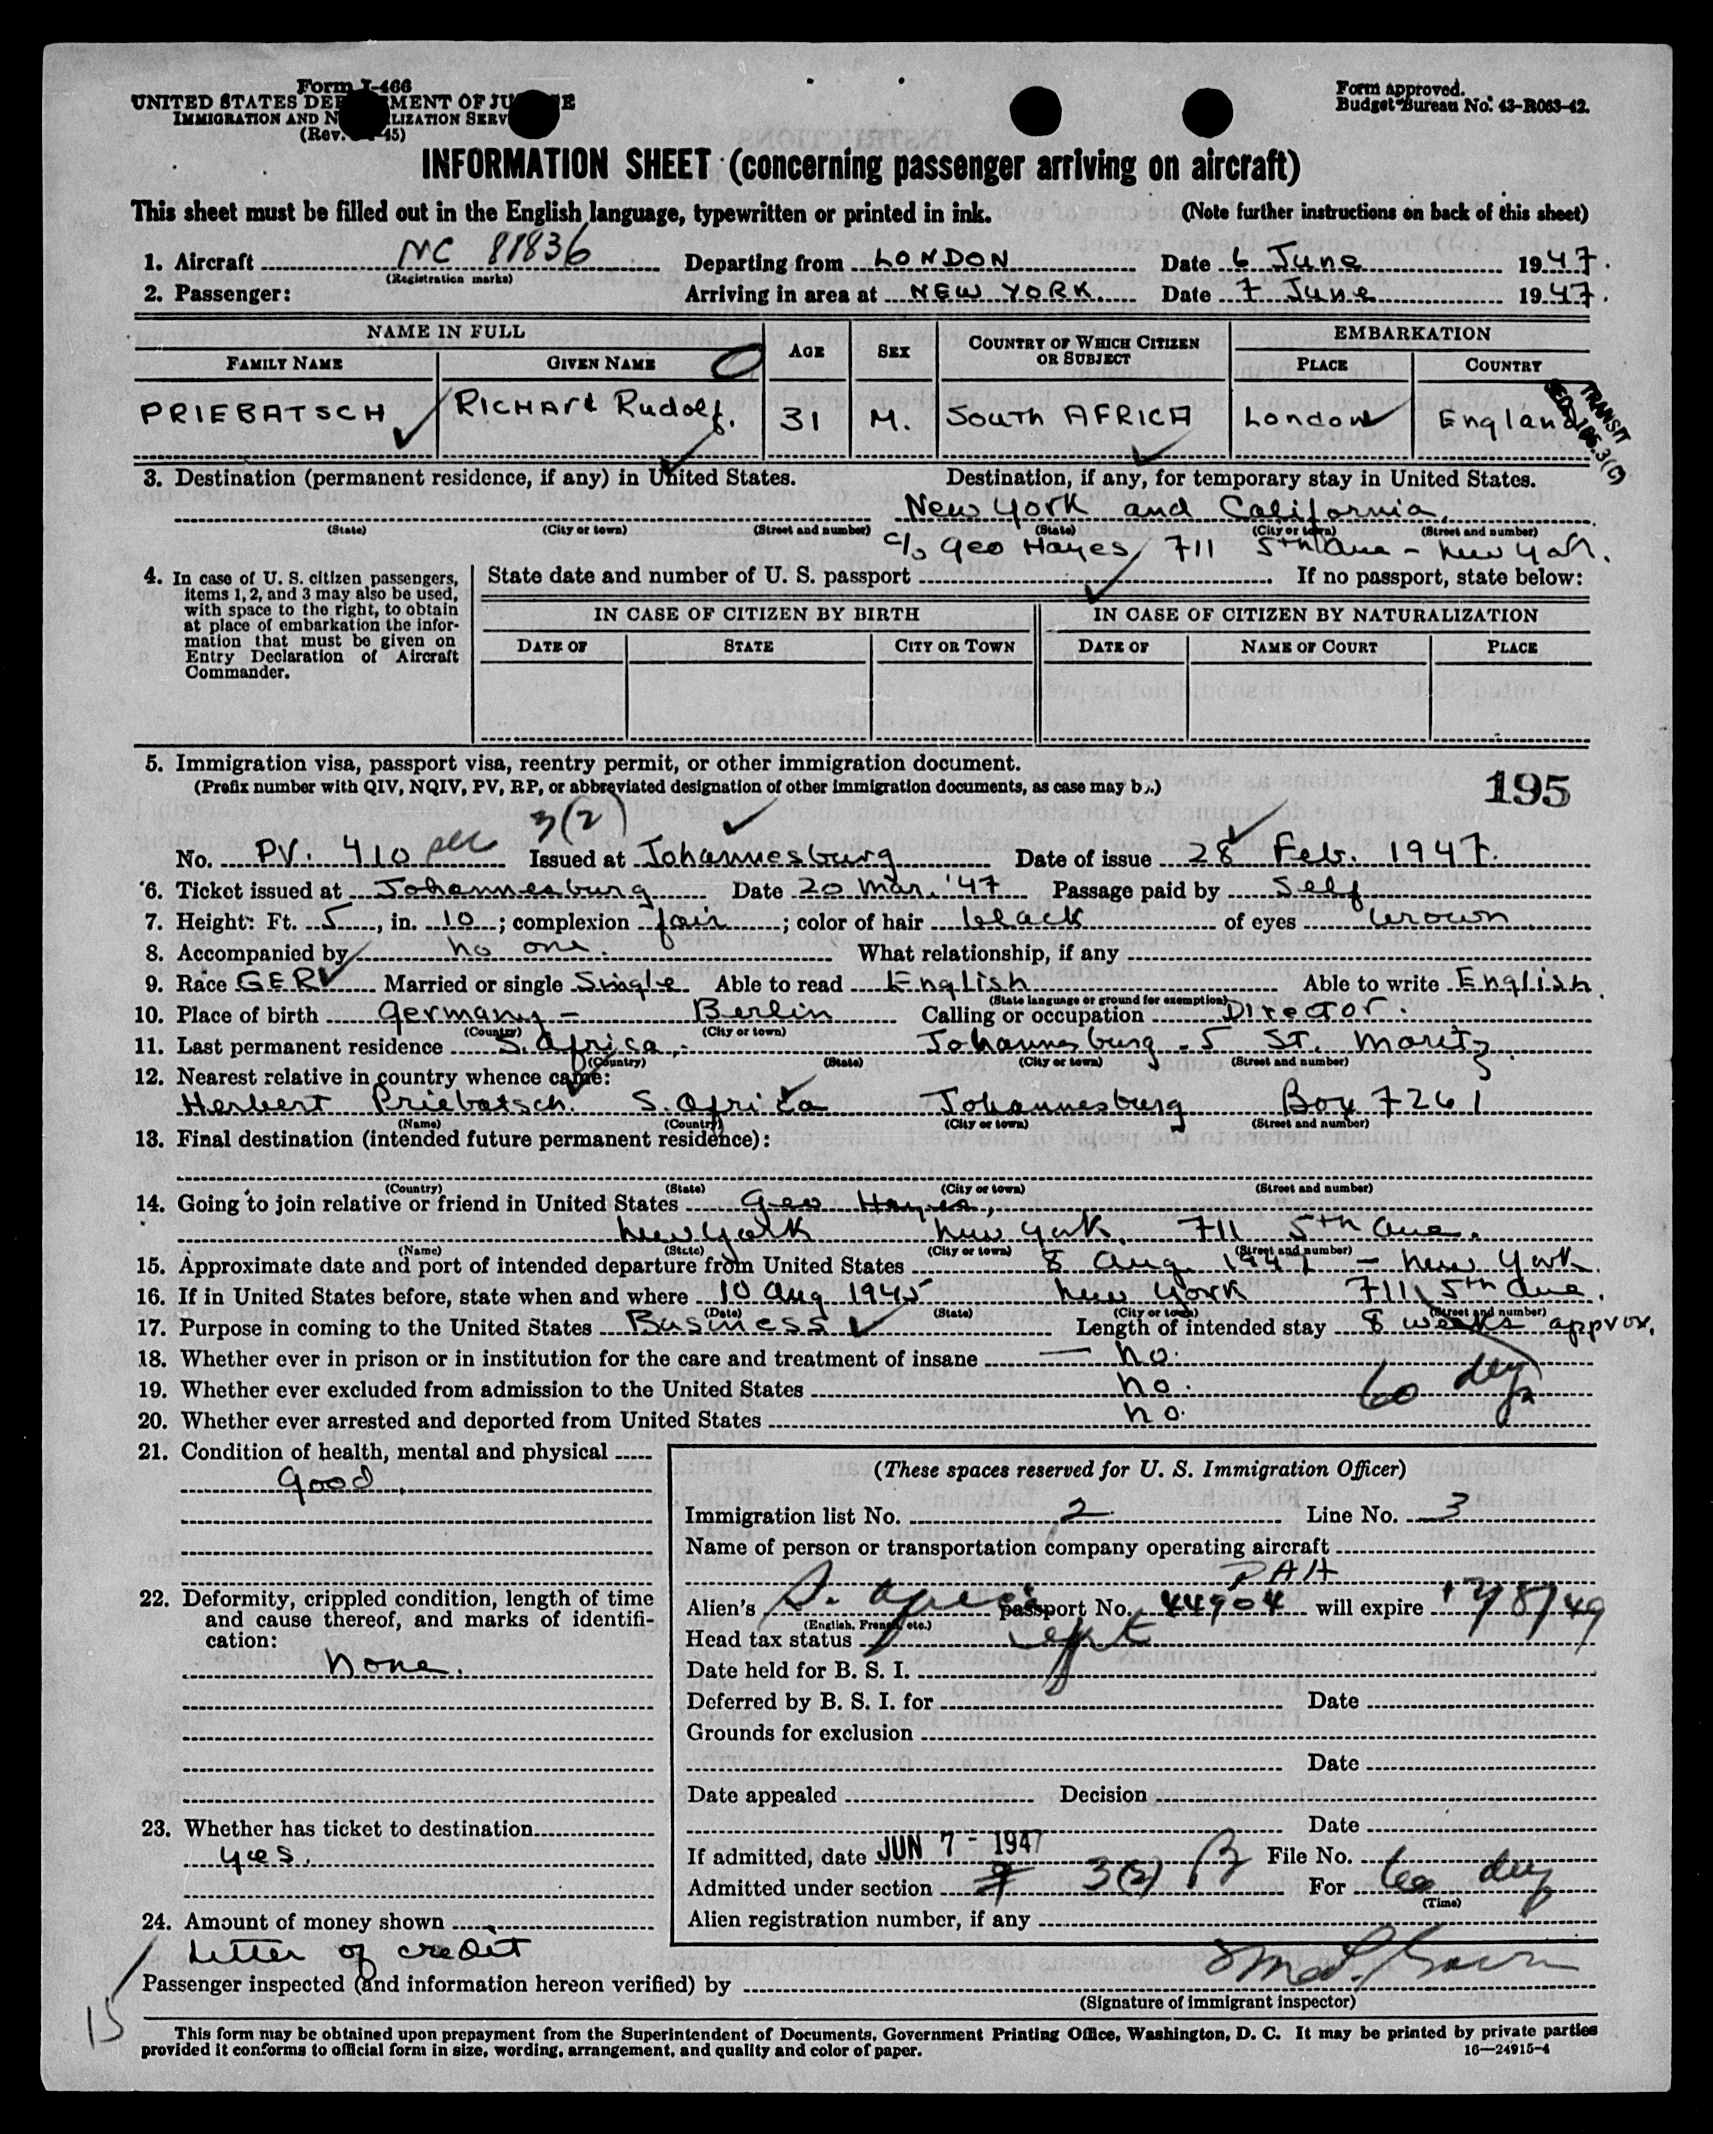 Form I-466
UNITED STATES DEPARTMENT OF JUSTICE
IMMIGRATION AND NATURALIZATION SERVICE
(Rev. 45)
Form approved.
Budget Bureau No. 43-R063-42.
INFORMATION SHEET (concerning passenger arriving on aircraft)
This sheet must be filled out in the English language, typewritten or printed in ink. (Note further instructions on back of this sheet)
1. Aircraft NC 88836 Departing from LONDON Date 6 June 1947.
(Registration marks)
2. Passenger: Arriving in area at NEW YORK Date 7 June 1947.
NAME IN FULL AGE SEX COUNTRY OF WHICH CITIZEN OR SUBJECT EMBARKATION
FAMILY NAME GIVEN NAME PLACE COUNTRY
PRIEBATSCH RICHArd Rudolf. 31 M. SOUTH AFRICA London England
TRANSIT
SEC. 165.3(C)
3. Destination (permanent residence, if any) in United States. Destination, if any, for temporary stay in United States.
New York and California
(State) (City or town) (Street and number) (State) (City or town) (Street and number)
c/o Geo Hayes, 711 5th Ave - New York.
4. In case of U. S. citizen passengers, items 1, 2, and 3 may also be used, with space to the right, to obtain at place of embarkation the information that must be given on Entry Declaration of Aircraft Commander.
State date and number of U. S. passport If no passport, state below:
IN CASE OF CITIZEN BY BIRTH IN CASE OF CITIZEN BY NATURALIZATION
DATE OF STATE CITY OR TOWN DATE OF NAME OF COURT PLACE
5. Immigration visa, passport visa, reentry permit, or other immigration document.
(Prefix number with QIV, NQIV, PV, RP, or abbreviated designation of other immigration documents, as case may be.)
195
3(2)
No. PV. 410 sec Issued at Johannesburg Date of issue 28 Feb. 1947.
6. Ticket issued at Johannesburg Date 20 Mar. '47 Passage paid by Self
7. Height: Ft. 5, in. 10; complexion fair; color of hair black of eyes brown
8. Accompanied by no one. What relationship, if any
9. Race GER Married or single Single Able to read English Able to write English.
(State language or ground for exemption)
10. Place of birth Germany - Berlin Calling or occupation Director.
(Country) (City or town)
11. Last permanent residence S. Africa, Johannesburg - 5 St. Moritz
(Country) (State) (City or town) (Street and number)
12. Nearest relative in country whence came:
Herbert Priebatsch. S. Africa Johannesburg Box 7261
(Name) (Country) (City or town) (Street and number)
13. Final destination (intended future permanent residence):
(Country) (State) (City or town) (Street and number)
14. Going to join relative or friend in United States Geo Hayes,
New York New York. 711 5th Ave.
(Name) (State) (City or town) (Street and number)
15. Approximate date and port of intended departure from United States 8 Aug. 1947 - New York.
16. If in United States before, state when and where 10 Aug 1945 New York 711, 5th Ave.
(Date) (State) (City or town) (Street and number)
17. Purpose in coming to the United States Business Length of intended stay 8 weeks approx.
18. Whether ever in prison or in institution for the care and treatment of insane no.
19. Whether ever excluded from admission to the United States no. 60 days
20. Whether ever arrested and deported from United States no.
21. Condition of health, mental and physical
good.
(These spaces reserved for U. S. Immigration Officer)
Immigration list No. 2 Line No. 3
Name of person or transportation company operating aircraft
PAA
22. Deformity, crippled condition, length of time and cause thereof, and marks of identification:
None.
Alien's S. African passport No. 44904 will expire 1/8/49
(English, French, etc.)
Head tax status
Date held for B. S. I.
Deferred by B. S. I. for Date
Grounds for exclusion
Date
Date appealed Decision
23. Whether has ticket to destination
yes.
Date
If admitted, date JUN 7 - 1947 File No.
Admitted under section 3(2) B For 60 days
(Time)
24. Amount of money shown
Letter of credit
Alien registration number, if any
Passenger inspected (and information hereon verified) by
(Signature of immigrant inspector)
15
This form may be obtained upon prepayment from the Superintendent of Documents, Government Printing Office, Washington, D. C. It may be printed by private parties
provided it conforms to official form in size, wording, arrangement, and quality and color of paper.
16—24915-4